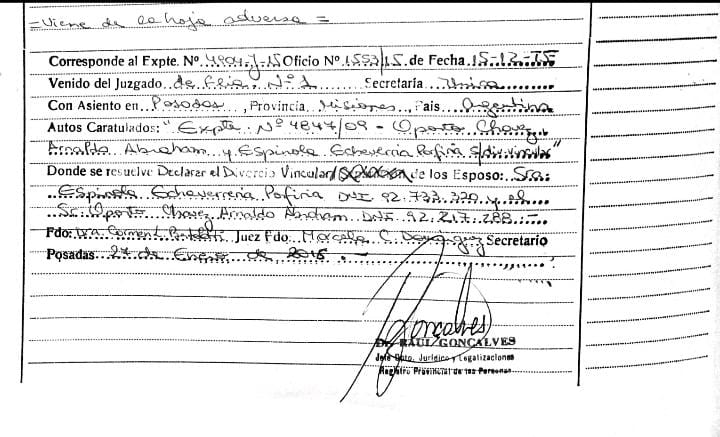 =Viene de la hoja adversa=
Corresponde al Expte. Nº 4904-J-15 Oficio Nº 1593/15 de Fecha 15-12-15
Venido del Juzgado de Flia. Nº 1 Secretaría Unica
Con Asiento en Posadas, Provincia, Misiones, País Argentina
Autos Caratulados: "Expte. Nº 4847/09 - Oporto Chavez
Arnaldo Abraham y Espinola Echeverria Porfiria s/div. vincular"
Donde se resuelve Declarar el Divorcio Vincular/ de los Esposo: Sra:
Espinola Echeverreria Pofiria DNI 92.733.320 y el
Sr. Oporto Chavez Arnaldo Abraham DNI 92.217.288.-
Fdo: Dra. Carmen Juez Fdo. Marcela C. Secretario
Posadas 27 de Enero de 2016.-
Goncalves
Dr. RAUL GONCALVES
Jefe Dpto. Jurídico y Legalizaciones
Registro Provincial de las Personas